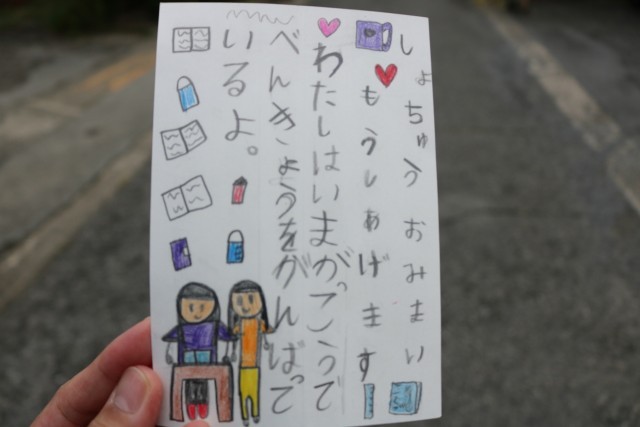 しょちゅうおみまい
もうしあげます
わたしはいまがっこうで
べんきょうをがんばって
いるよ。